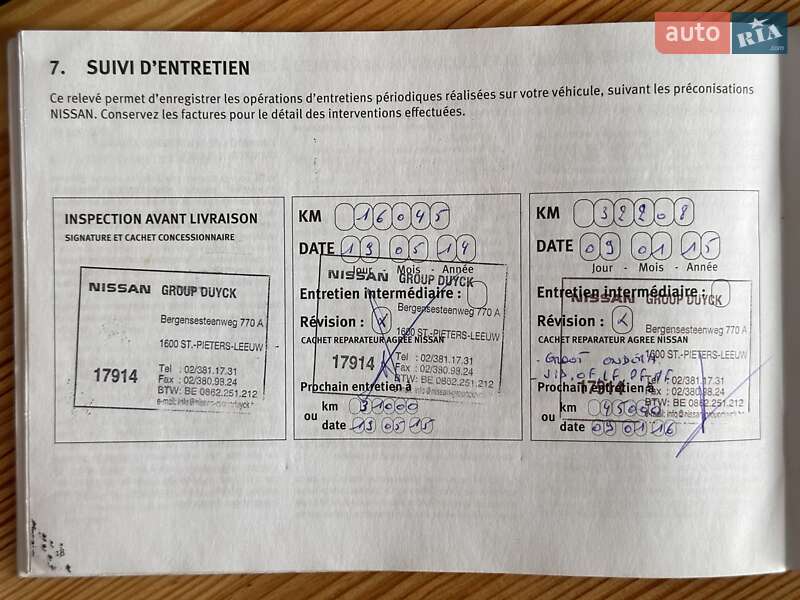 auto RIA.com
7. SUIVI D'ENTRETIEN
Ce relevé permet d'enregistrer les opérations d'entretiens périodiques réalisées sur votre véhicule, suivant les préconisations
NISSAN. Conservez les factures pour le détail des interventions effectuées.
INSPECTION AVANT LIVRAISON
SIGNATURE ET CACHET CONCESSIONNAIRE
NISSAN GROUP DUYCK
Bergensesteenweg 770 A
1600 ST.-PIETERS-LEEUW
17914
Tel : 02/381.17.31
Fax : 02/380.98.24
BTW: BE 0862.251.212
KM 16045
DATE 19 05 14
Jour - Mois - Année
NISSAN GROUP DUYCK
Entretien intermédiaire :
Bergensesteenweg 770 A
Révision : X
1600 ST.-PIETERS-LEEUW
CACHET REPARATEUR AGREE NISSAN
17914
Tel : 02/381.17.31
Fax : 02/380.98.24
BTW: BE 0862.251.212
Prochain entretien à
km 31000
ou
date 19 05 15
KM 32208
DATE 09 01 15
Jour - Mois - Année
NISSAN GROUP DUYCK
Entretien intermédiaire :
Bergensesteenweg 770 A
Révision : X
CACHET REPARATEUR AGREE NISSAN
1600 ST.-PIETERS-LEEUW
17914
Tel : 02/381.17.31
Fax : 02/380.98.24
BTW: BE 0862.251.212
Prochain entretien à
km 45000
ou
date 09 01 16